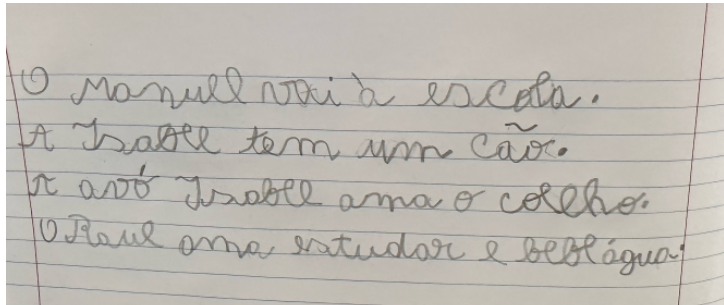 O Manuel vai à escola.
A Isabel tem um cão.
A avó Isabel ama o coelho.
O Raul ama estudar e beber água.